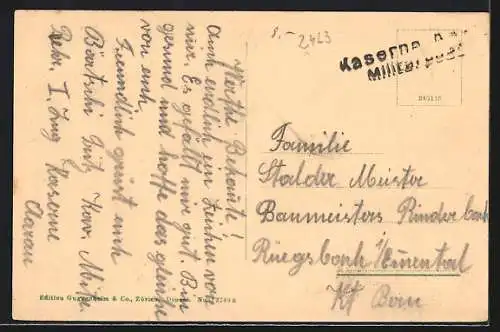 Werthe Bekannte!
Auch endlich ein Zeichen von
mir. Es gefällt mir gut. Bin
gesund und hoffe das gleiche
von euch
Freundlich grüsst euch
Bärtschi Kav. Mitr.
Rekr. I. Zug Kaserne
Aarau
8.— 2423
Kaserne
Militär
Familie
Stalder Meister
Baumeisters
Rüegsbach Emental
Kt Bern
Edition Guggenheim & Co., Zürich.